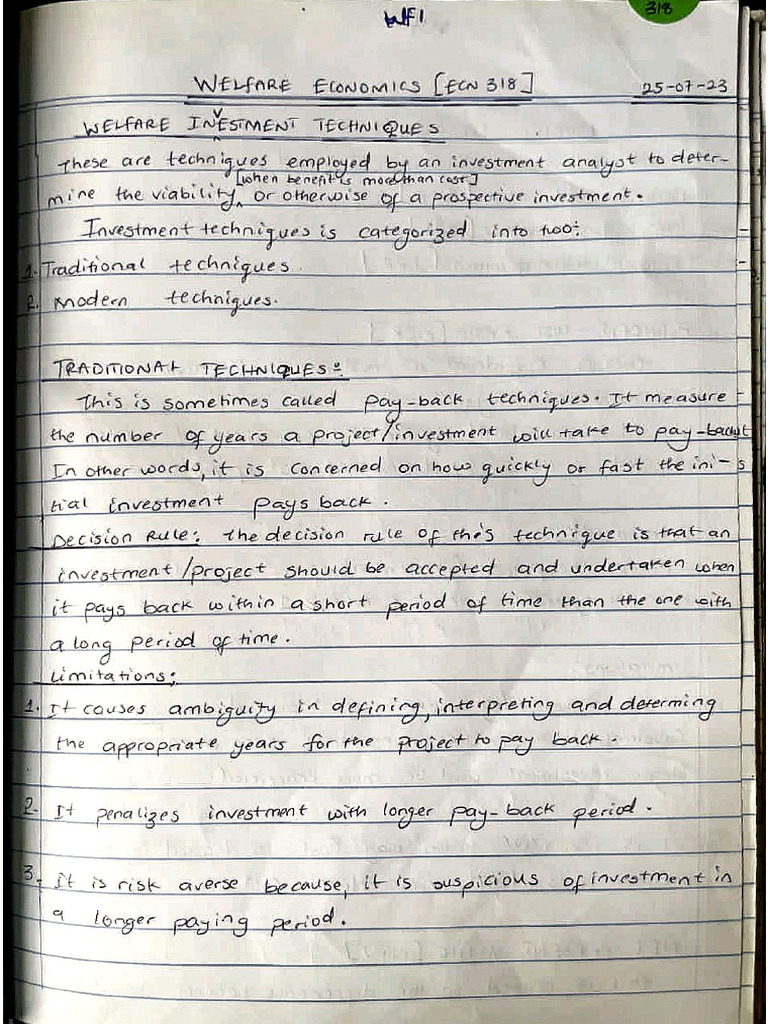 WF1
318
WELFARE ECONOMICS [ECN 318] 25-07-23
WELFARE INVESTMENT TECHNIQUES
These are techniques employed by an investment analyst to deter-
[when benefit is more than cost]
mine the viability, or otherwise of a prospective investment.
Investment techniques is categorized into two:
1. Traditional techniques
2. Modern techniques.
TRADITIONAL TECHNIQUES:
This is sometimes called pay-back techniques. It measure
the number of years a project/investment will take to pay-back.
In other words, it is concerned on how quickly or fast the ini-
tial investment pays back.
Decision Rule: the decision rule of this technique is that an
investment/project should be accepted and undertaken when
it pays back within a short period of time than the one with
a long period of time.
Limitations:
1. It causes ambiguity in defining, interpreting and determing
the appropriate years for the project to pay back.
2. It penalizes investment with longer pay-back period.
3. It is risk averse because, it is suspicious of investment in
a longer paying period.